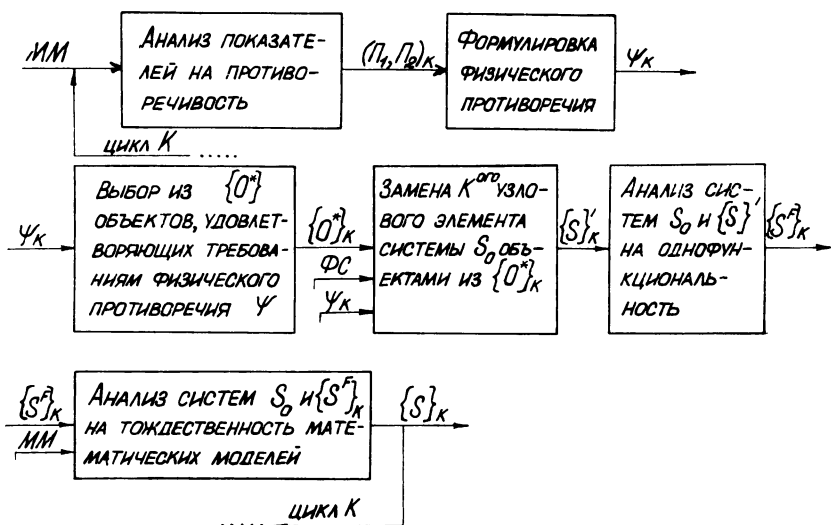 ММ
Анализ показате-
лей на противо-
речивость
(П₁, П₂)ₖ
Формулировка
физического
противоречия
Ψₖ
цикл K .....
Ψₖ
Выбор из {O*}
объектов, удовлет-
воряющих требова-
ниям физического
противоречия Ψ
{O*}ₖ
ФС
Ψₖ
Замена Kого узло-
вого элемента
системы S₀ объ-
ектами из {O*}ₖ
{S}'ₖ
Анализ сис-
тем S₀ и {S}'
на однофун-
кциональ-
ность
{Sᶠ}ₖ
{Sᶠ}ₖ
ММ
Анализ систем S₀ и {Sᶠ}ₖ
на тождественность мате-
матических моделей
{S}ₖ
цикл K